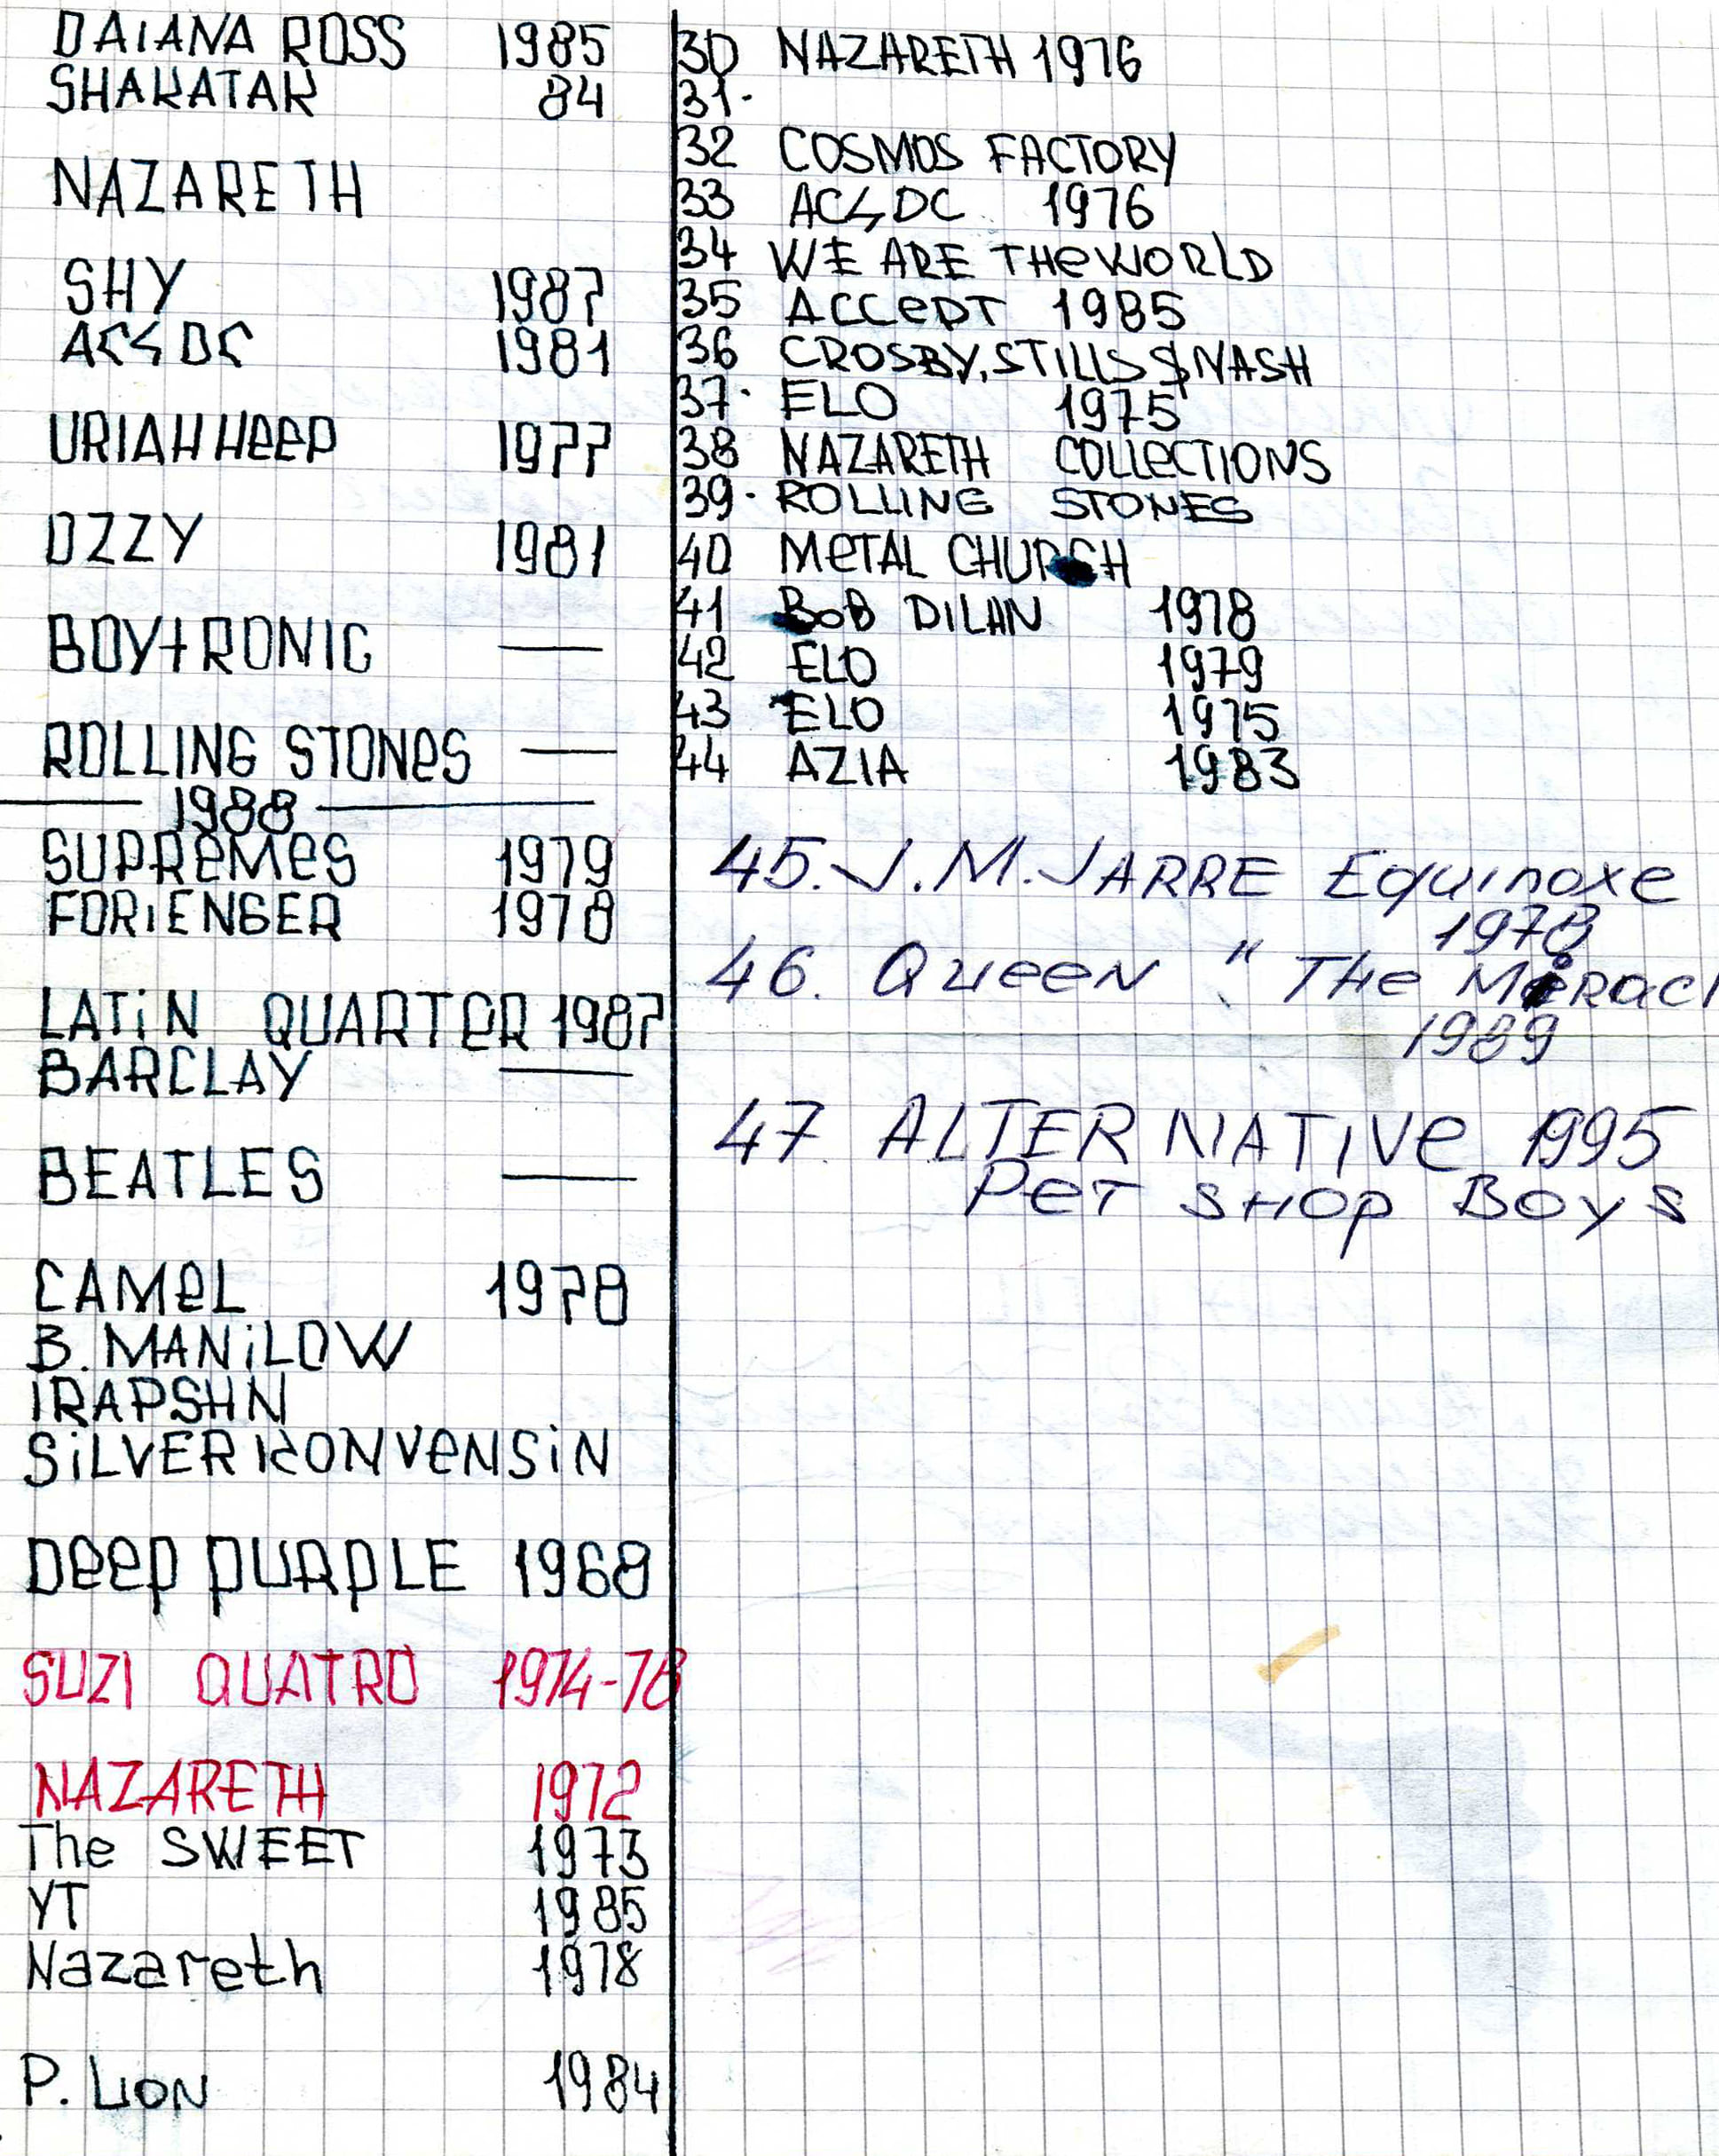 DAIANA ROSS 1985
SHAKATAK 84
NAZARETH
SHY 1987
AC⚡DC 1981
URIAH HeeP 1977
OZZY 1981
BOYTRONIC —
ROLLING STONeS —
— 1988 —
SUPReMeS 1979
FORiENGER 1978
LATiN QUARTeR 1987
BARCLAY —
BEATLES —
CAMeL 1978
B. MANiLOW
IRAPSHN
SiLVER KONVeNSiN
Deep PURPLE 1968
SUZI QUATRO 1974-78
NAZARETH 1972
The SWEET 1973
YT 1985
Nazareth 1978
P. LION 1984
30 NAZARETH 1976
31.
32 COSMOS FACTORY
33 AC⚡DC 1976
34 WE ARE THe WORLD
35 ACCePT 1985
36 CROSBY, STILLS $ NASH
37. ELO 1975
38 NAZARETH COLLeCTIONS
39. ROLLING STONES
40 MeTAL CHURCH
41 BoB DILAN 1978
42 ELO 1979
43 ELO 1975
44 AZIA 1983
45. J. M. JARRE Equinoxe
1978
46. Queen " The Miracl
1989
47. ALTERNATIVe 1995
PeT SHOp BOyS